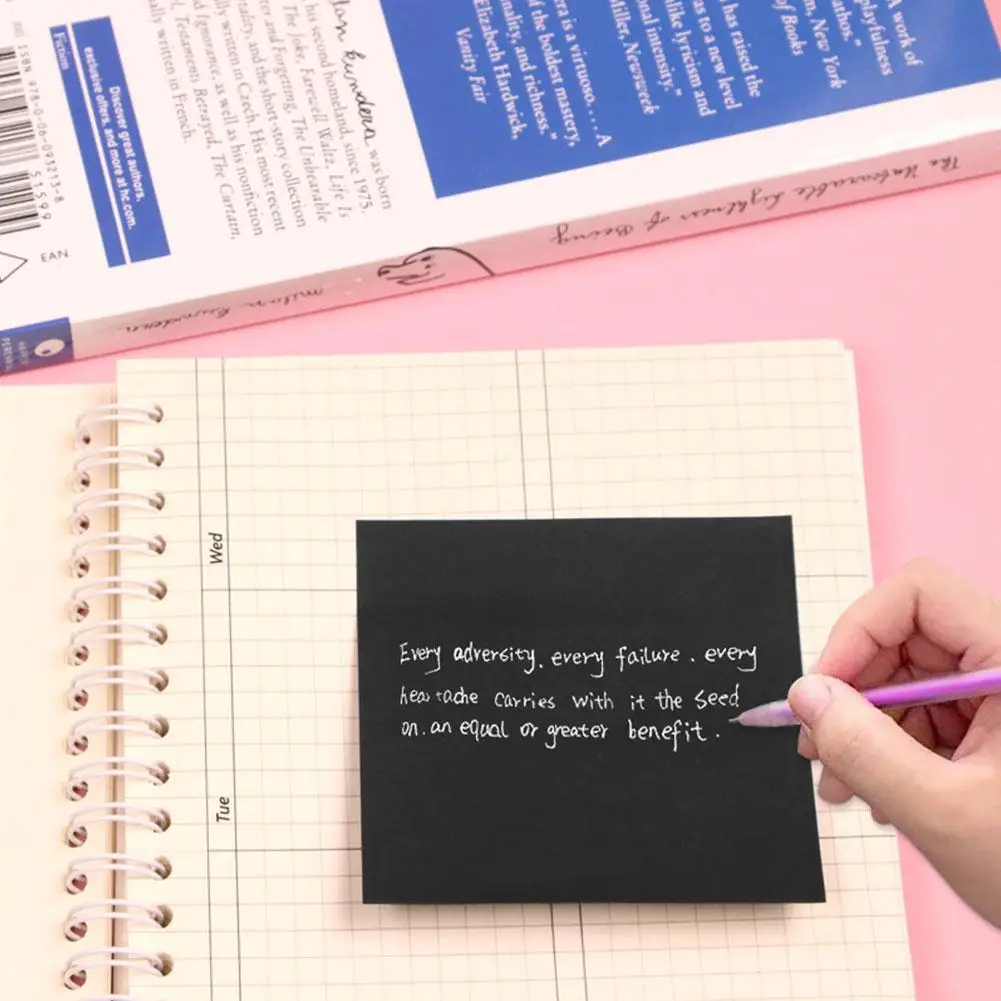 A work of
playfulness
athos."
m, New York
of Books
has raised the
as to a new level
alike lyricism and
onal intensity."
Miller, Newsweek
era is a virtuoso. . . . A
of the boldest mastery,
nality, and richness."
Elizabeth Hardwick,
Vanity Fair
lan kundera was born
his second homeland, since 1975.
The Joke, Farewell Waltz, Life Is
ter and Forgetting, The Unbearable
ality, and the short-story collection
lly written in Czech. His most recent
and Ignorance, as well as his nonfiction
el, Testaments Betrayed, The Curtain,
ally written in French.
Discover great authors,
exclusive offers, and more at hc.com.
Fiction
ISBN 978-0-06-093213-8
51599
EAN
The Unbearable Lightness of Being
milan kundera
HARPER
PERENNIAL
Wed
Tue
Every adversity. every failure. every
heartache carries with it the seed
on. an equal or greater benefit.